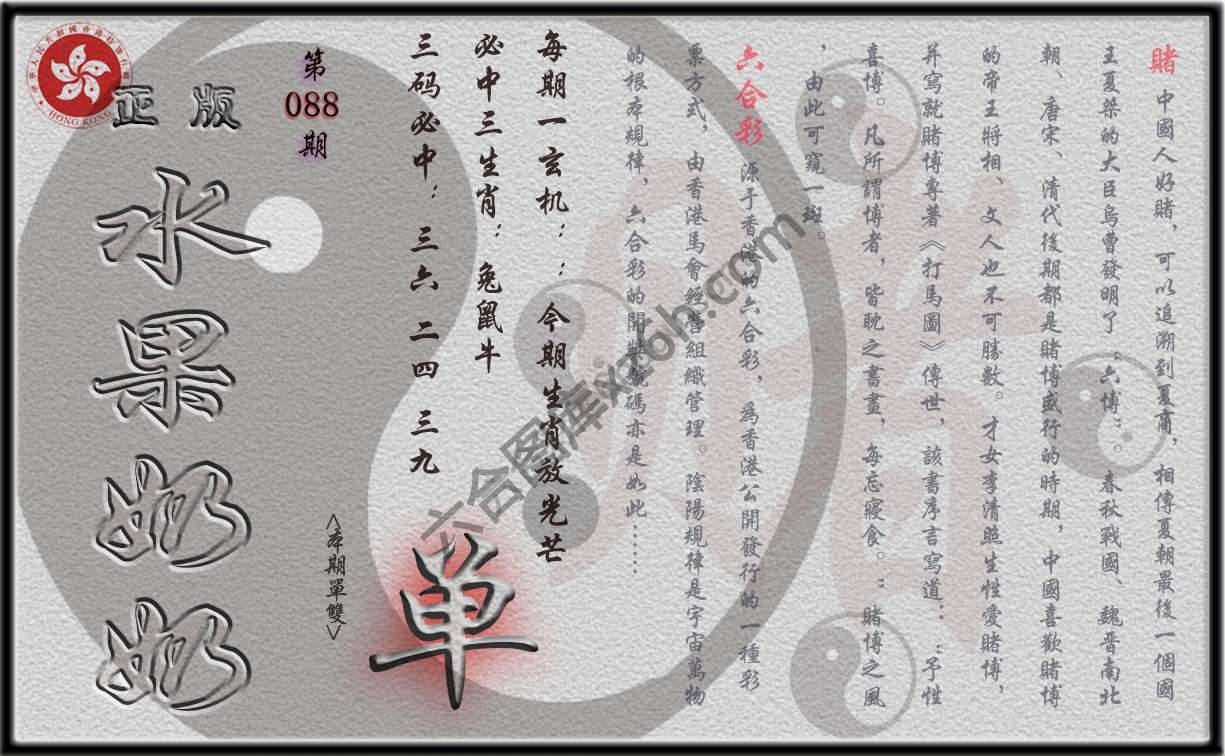 賭 中國人好賭，可以追溯到夏商，相傳夏朝最後一個國
王夏桀的大臣烏曹發明了“六博”。春秋戰國、魏晉南北
朝、唐宋、清代後期都是賭博盛行的時期，中國喜歡賭博
的帝王將相、文人也不可勝數。才女李清照生性愛賭博，
并寫就賭博專著《打馬圖》傳世，該書序言寫道：“予性
喜博。凡所謂博者，皆耽之書畫，每忘寢食。”賭博之風
，由此可窺一斑。
六合彩 源于香港的六合彩，爲香港公開發行的一種彩
票方式，由香港馬會經營組織管理。陰陽規律是宇宙萬物
的根本規律，六合彩的開獎號碼亦是如此……
每期一玄机：：今期生肖放光芒
必中三生肖：兔鼠牛
三码必中：三六 二四 三九
单
<本期單雙>
第
088
期
正版
水果奶奶
HONG KONG
六合图库xz6h.com